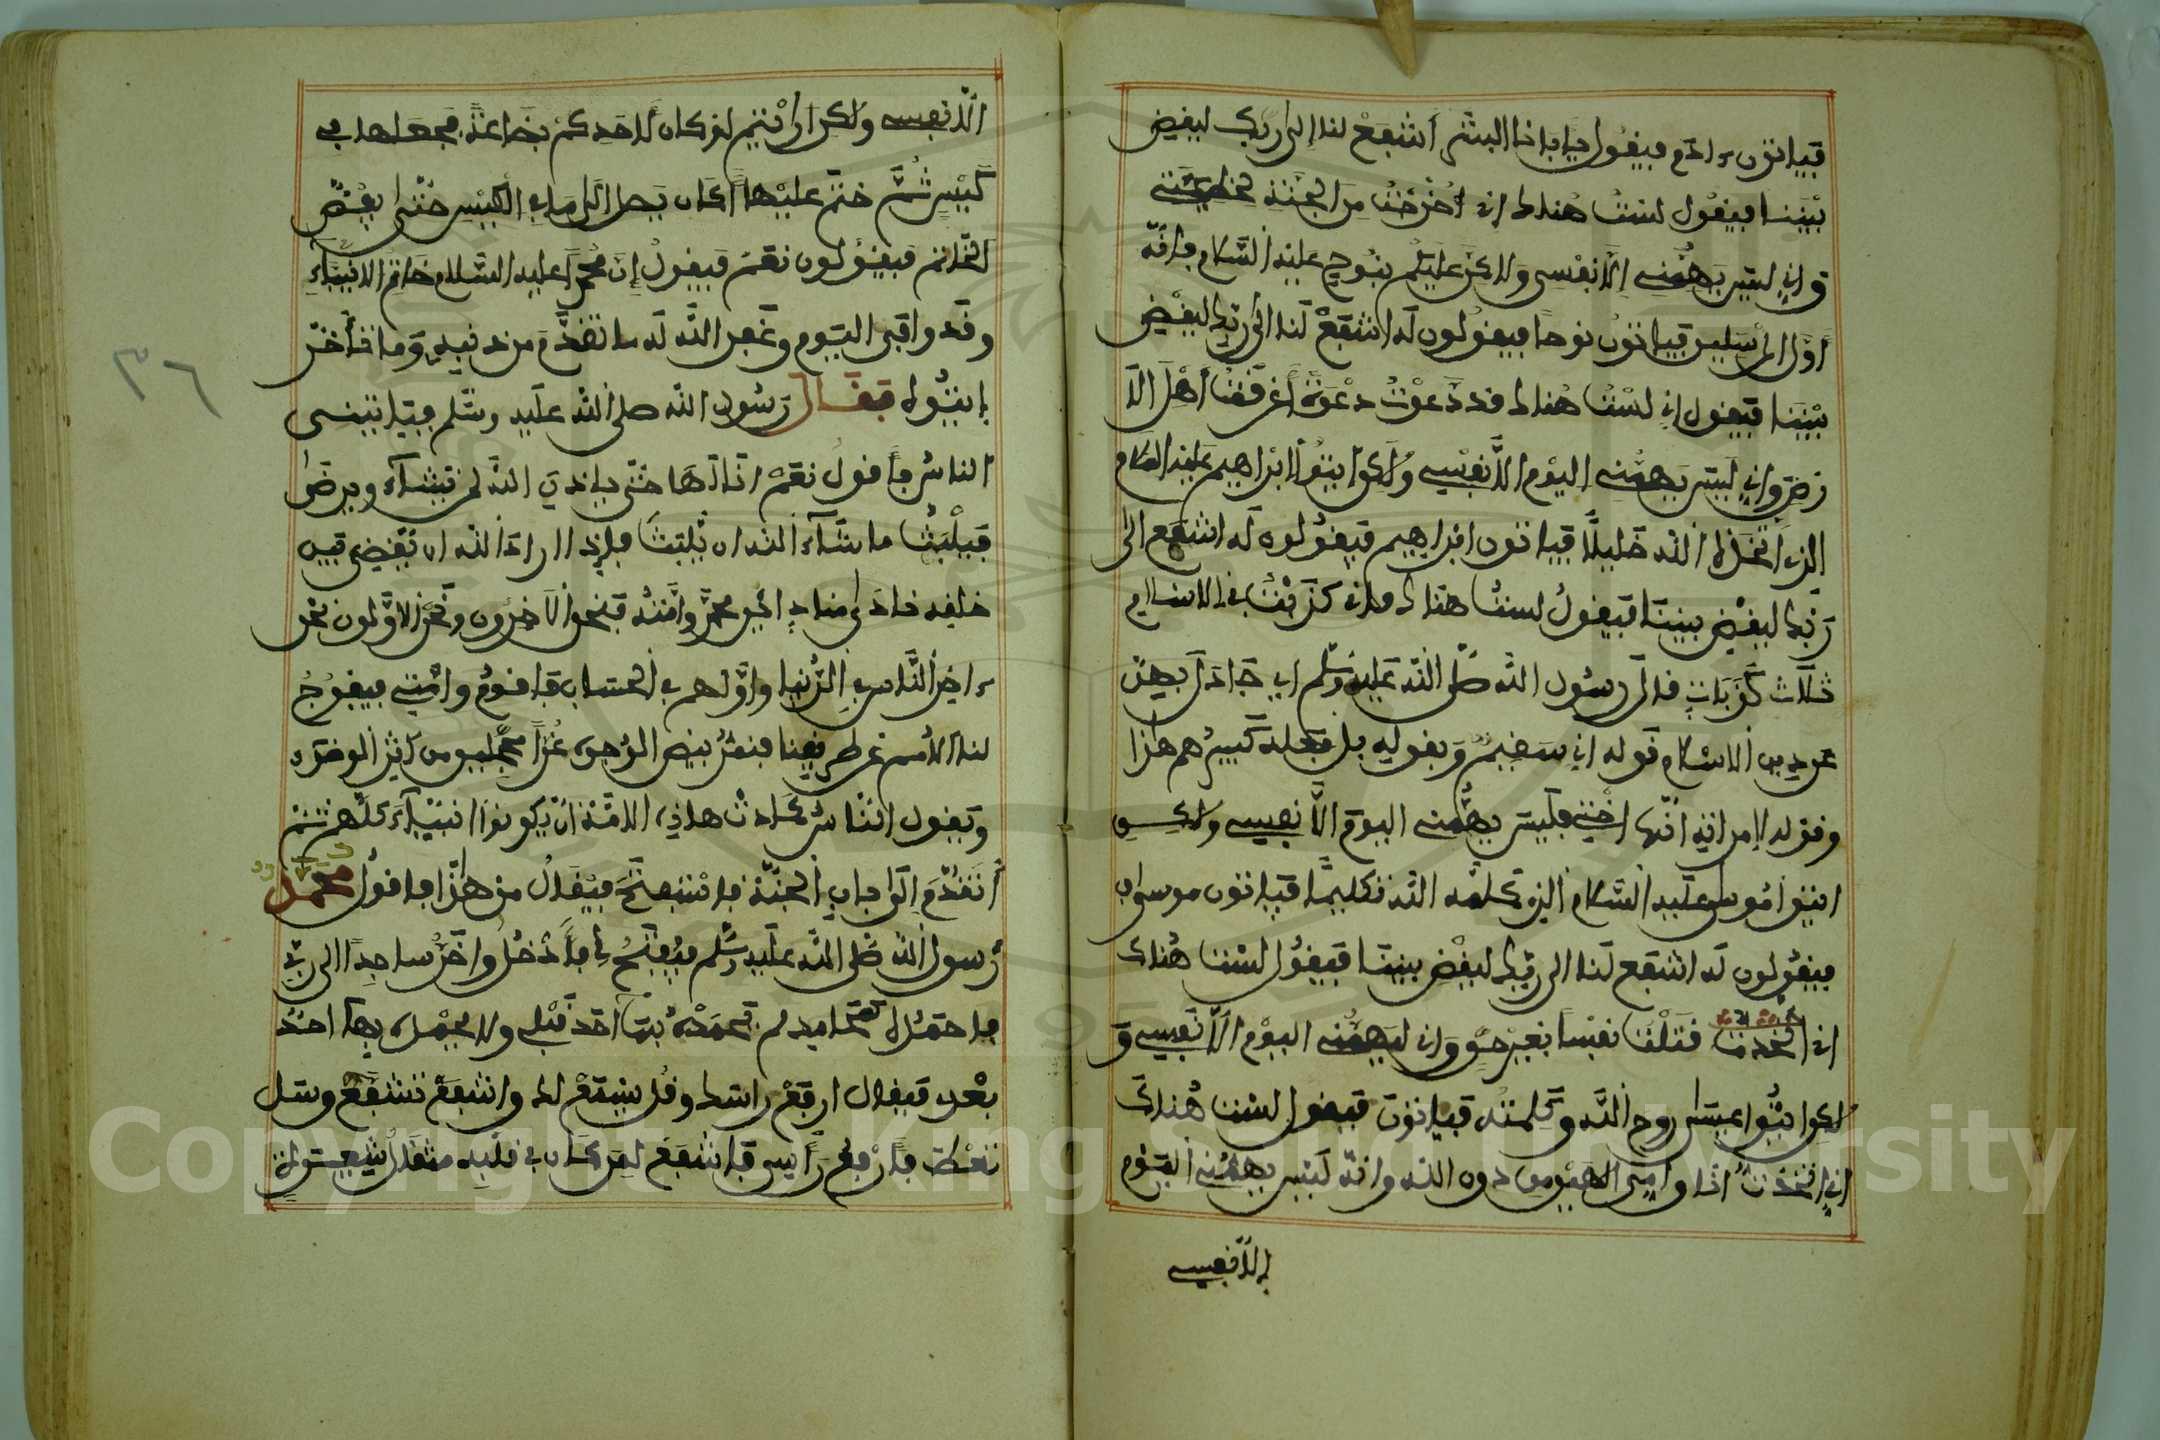 فياتون ءادم فيقول يا بانا البشر أشفع لنا إلى ربك ليقضي
بيننا فيقول لست هناك اني اخرجت من الجنة بخطيئتي
واني ليس يهمني إلا نفسي ولاكن عليكم بنوح عليه السلام فإنه
أول المرسلين فياتون نوحا فيقولون له اشفع لنا الى ربك ليقضي
بيننا فيقول اني لست هناك قد دعوت دعوة أغرقت أهل الا
رض واني ليس يهمني اليوم إلا نفسي ولكن ايتوا ابراهيم عليه السلام
الذي اتخذه الله خليلا فياتون ابراهيم فيقولون له اشفع الى
ربك ليقضي بيننا فيقول لست هناك فاني كذبت في الاسلام
ثلاث كذبات قال رسول الله صلى الله عليه وسلم اي جادل بهن
عن دين الاسلام قوله اني سقيم وبقوله بل فعله كبيرهم هذا
وقوله لامراته انها اختي فليس يهمني اليوم إلا نفسي ولكن
ايتوا موسى عليه السلام الذي كلمه الله تكليما فياتون موسى
فيقولون له اشفع لنا الى ربك ليقضي بيننا فيقول لست هناك
اني قتلت نفسا بغير حق واني ليهمني اليوم إلا نفسي و
لكن ايتوا عيسى روح الله وكلمته فياتون فيقول لست هناك
اني اتخذت انا وامي الاهين من دون الله وانه ليس يهمني اليوم
إلا نفسي
الا نفسي ولكن ارايتم لو كان لاحدكم بضاعة فجعلها في
كيس ثم ختم عليها اكان يصل الى ما في الكيس حتى يفض
الخاتم فيقولون نعم فيقول إن محمدا عليه السلام خاتم الانبياء
وقد وافى اليوم وغفر الله له ما تقدم من ذنبه وما تأخر
إيتوه فقال رسول الله صلى الله عليه وسلم فياتيني
الناس فأقول نعم انا لها حتى ياذن الله لمن يشاء ويرضى
فيلبث ما شاء الله ان يلبث فإذا اراد الله ان يقضي بين
خلقه نادى مناد اين محمد وأمته فنحن الآخرون ونحن الاولون نحن
ءاخر الناس في الدنيا واولهم في الحساب فاقوم وامتي فيفرج
لنا الأمم عن طريقنا فنمر بيض الوجوه غرا محجلين من اثر الوضوء
وتقول الناس كادت هاذه الامة ان يكونوا انبياء كلهم ثم
أتقدم إلى باب الجنة فاستفتح فيقال من هذا فاقول محمد
رسول الله صلى الله عليه وسلم فيفتح لي فأدخل واخر ساجدا الى ربي
فاحمده بمحامد لم يحمده بها احد قبلي ولا يحمده بها احد
بعدي فيقال ارفع راسك وقل يسمع لك واشفع تشفع وسل
تعط فأرفع رأسي فاشفع لمن كان في قلبه مثقال شعيرة
٣٦
Copyright © King Saud University